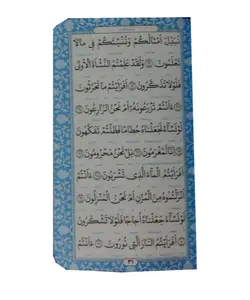 نُبَدِّلَ أَمْثَالَكُمْ وَنُنشِئَكُمْ فِي مَا لَا
تَعْلَمُونَ ۝ وَلَقَدْ عَلِمْتُمُ النَّشْأَةَ الْأُولَى
فَلَوْلَا تَذَكَّرُونَ ۝ أَفَرَأَيْتُم مَّا تَحْرُثُونَ
ءَأَنتُمْ تَزْرَعُونَهُ أَمْ نَحْنُ الزَّارِعُونَ
لَوْ نَشَاءُ لَجَعَلْنَاهُ حُطَامًا فَظَلْتُمْ تَفَكَّهُونَ
إِنَّا لَمُغْرَمُونَ ۝ بَلْ نَحْنُ مَحْرُومُونَ ۝
أَفَرَأَيْتُمُ الْمَاءَ الَّذِي تَشْرَبُونَ ۝ ءَأَنتُمْ
أَنزَلْتُمُوهُ مِنَ الْمُزْنِ أَمْ نَحْنُ الْمُنزِلُونَ
لَوْ نَشَاءُ جَعَلْنَاهُ أُجَاجًا فَلَوْلَا تَشْكُرُونَ
أَفَرَأَيْتُمُ النَّارَ الَّتِي تُورُونَ ۝ ءَأَنتُمْ